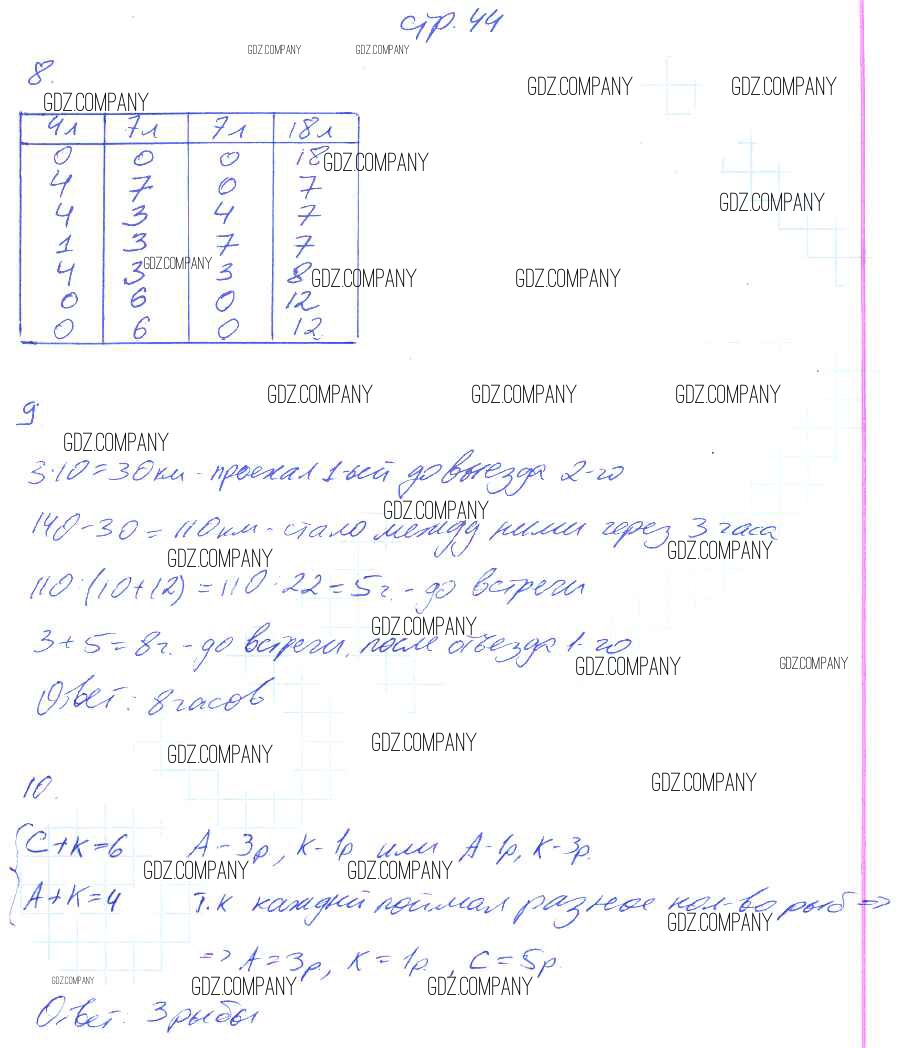 стр. 44
GDZ.COMPANY GDZ.COMPANY
8.
GDZ.COMPANY GDZ.COMPANY
GDZ.COMPANY
4л 7л 7л 18л
0 0 0 18 GDZ.COMPANY
4 7 0 7
GDZ.COMPANY
4 3 4 7
1 3 7 7
GDZ.COMPANY
4 3 3 8 GDZ.COMPANY GDZ.COMPANY
0 6 0 12
0 6 0 12
GDZ.COMPANY GDZ.COMPANY GDZ.COMPANY
9
GDZ.COMPANY
3·10=30км - проехал 1-ый до выезда 2-го
GDZ.COMPANY
140-30=110км - стало между ними через 3 часа
GDZ.COMPANY GDZ.COMPANY
110:(10+12)=110:22=5ч. - до встречи
GDZ.COMPANY
3+5=8ч. - до встречи, после отъезда 1-го
GDZ.COMPANY GDZ.COMPANY
Ответ: 8 часов
GDZ.COMPANY GDZ.COMPANY
10.
GDZ.COMPANY
{ С+К=6 А-3р, К-1р или А-1р, К-3р.
GDZ.COMPANY GDZ.COMPANY
А+К=4 Т.к каждый поймал разное кол-во рыб =>
GDZ.COMPANY
=> А=3р, К=1р., С=5р.
GDZ.COMPANY GDZ.COMPANY GDZ.COMPANY
Ответ: 3 рыбы